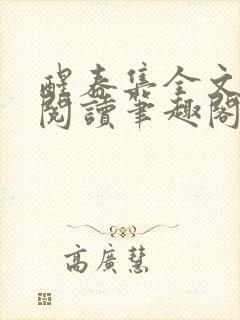 醒春集全文
閱讀筆趣閣
高廣慧